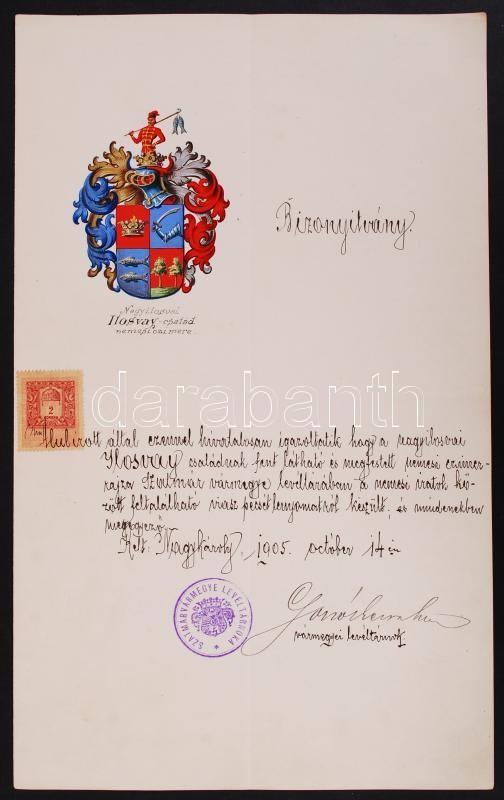 Bizonyitvány.
Nagyilosvai
Ilosvay-család
nemesi czimere.
2
darabanth
Alulirott által ezennel hivatalosan igazoltatik hogy a nagyilosvai
Ilosvay családnak fent látható és megfestett nemesi czimer-
rajza Szatmár vármegye levéltárában a nemesi iratok kö-
zött feltalálható viasz pecsétlenyomatról készült, és mindenekben
megegyező.
Kelt: Nagykároly, 1905. october 14-én
SZATMÁRVÁRMEGYE LEVÉLTÁRNOKA
vármegyei levéltárnok